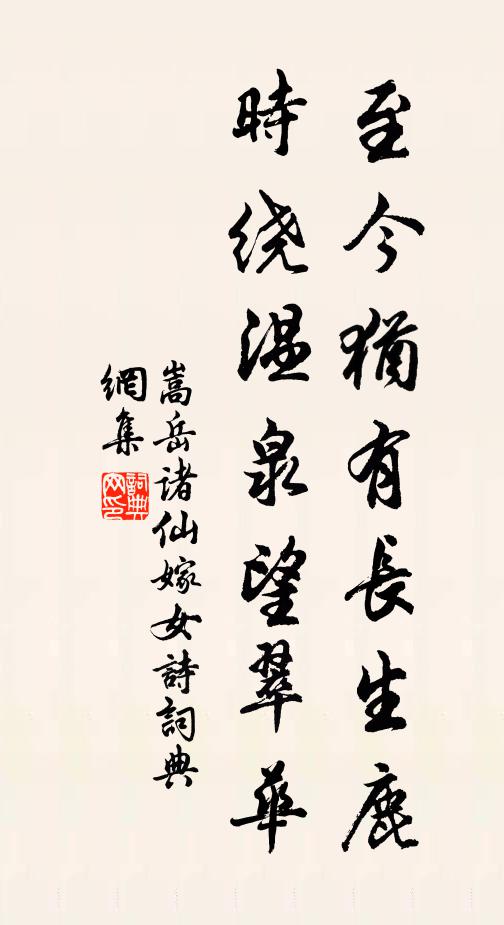 至今猶有長生鹿
時绕温泉望翠華
嵩岳诸仙嫁女詩詞典
網集
詞典
网印